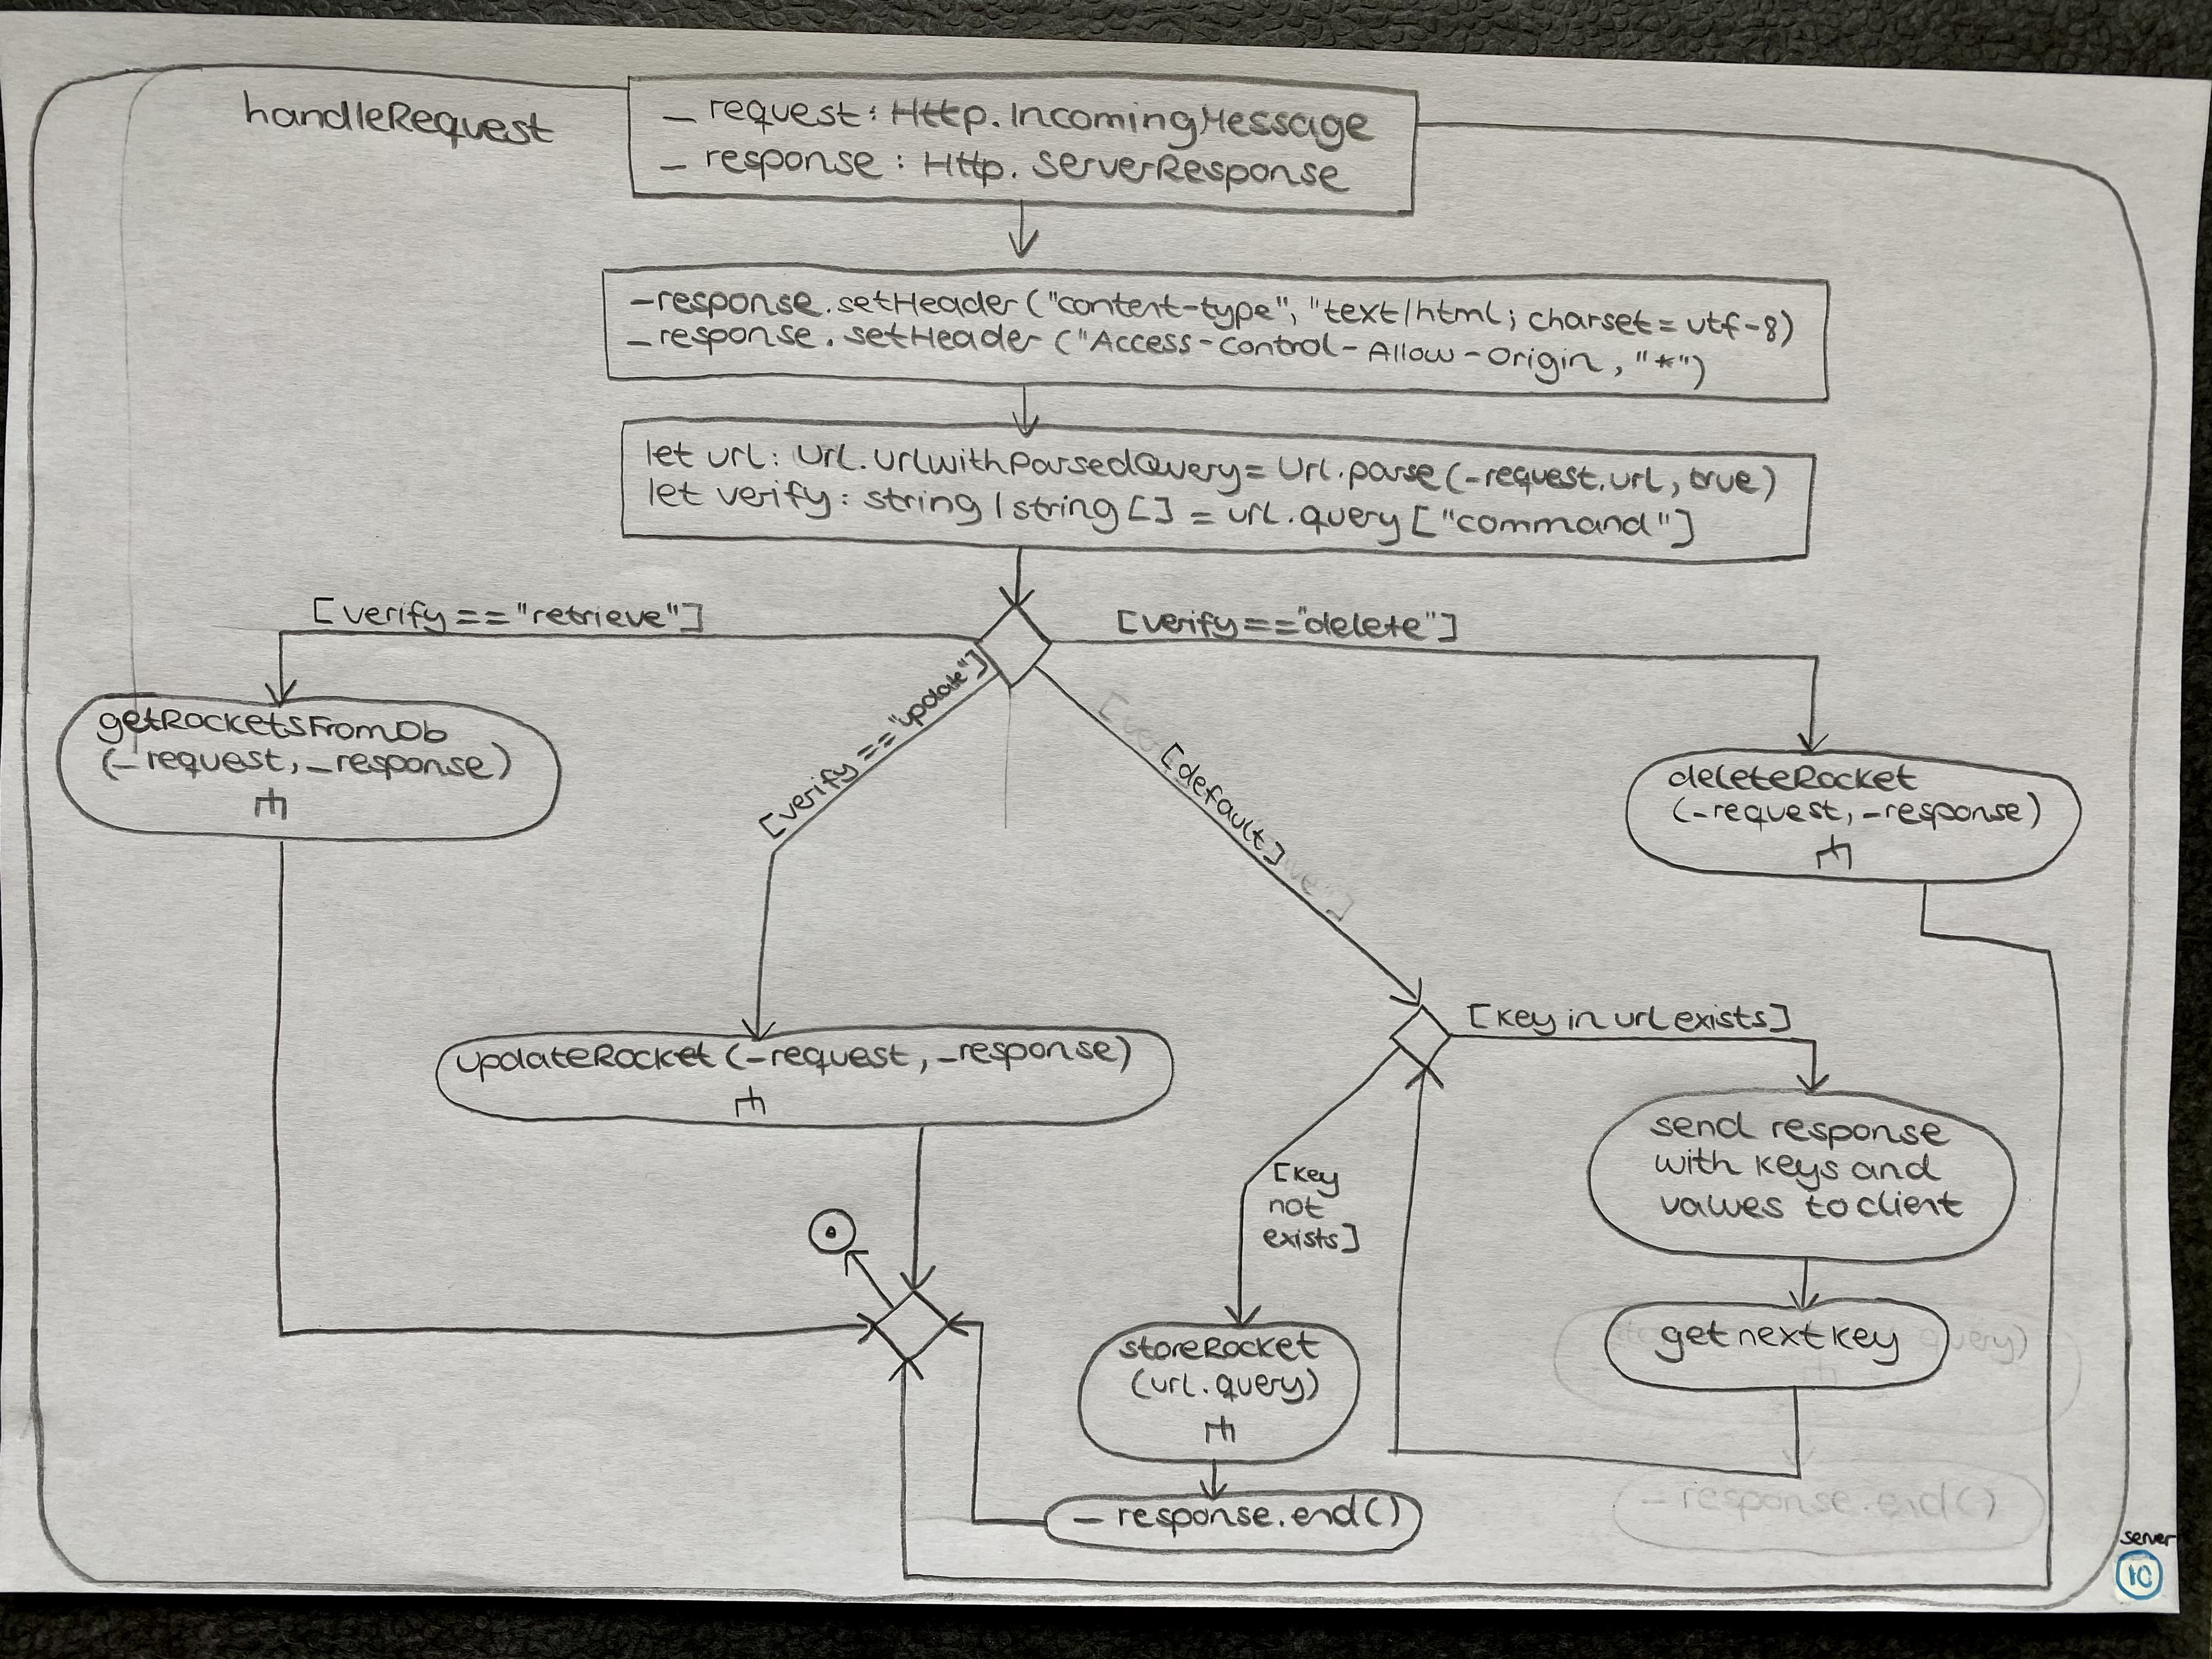 handleRequest
_ request : Http.IncomingMessage
_ response : Http. ServerResponse
_response.setHeader ("content-type", "text/html; charset=utf-8)
_response.setHeader ("Access-Control-Allow-Origin, "*")
let url: Url.UrlwithParsedQuery = Url.parse(_request.url, true)
let verify: string | string [] = url.query ["command"]
[verify == "retrieve"]
[verify == "delete"]
[verify == "update"]
[default]
getRocketsFromDb
(_request, _response)
deleteRocket
(_request, _response)
[key in url exists]
updateRocket (_request, _response)
send response
with keys and
values to client
[key
not
exists]
get next key
storeRocket
(url.query)
_ response.end()
_ response.end()
server
10